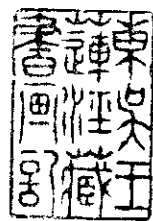 東吳王
蓮涇藏
書画記